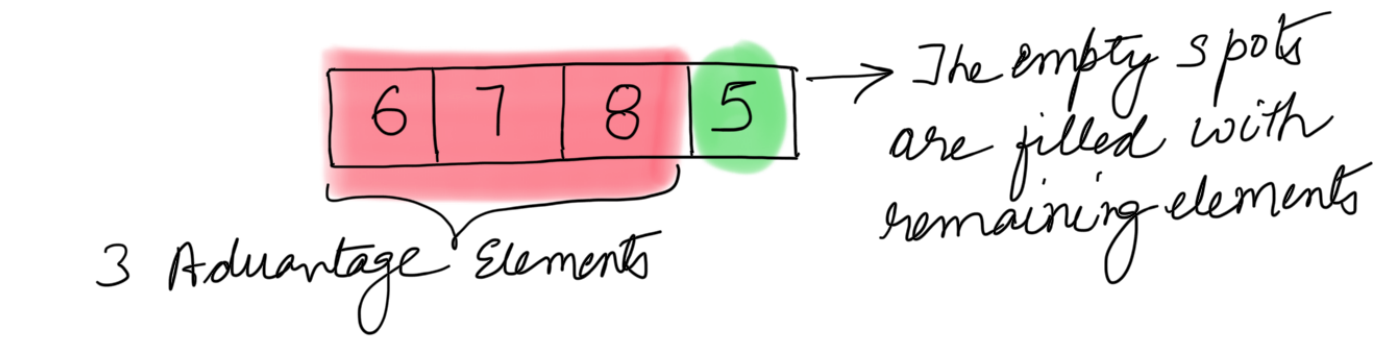 6 7 8 5
The empty spots
are filled with
remaining elements
3 Advantage Elements